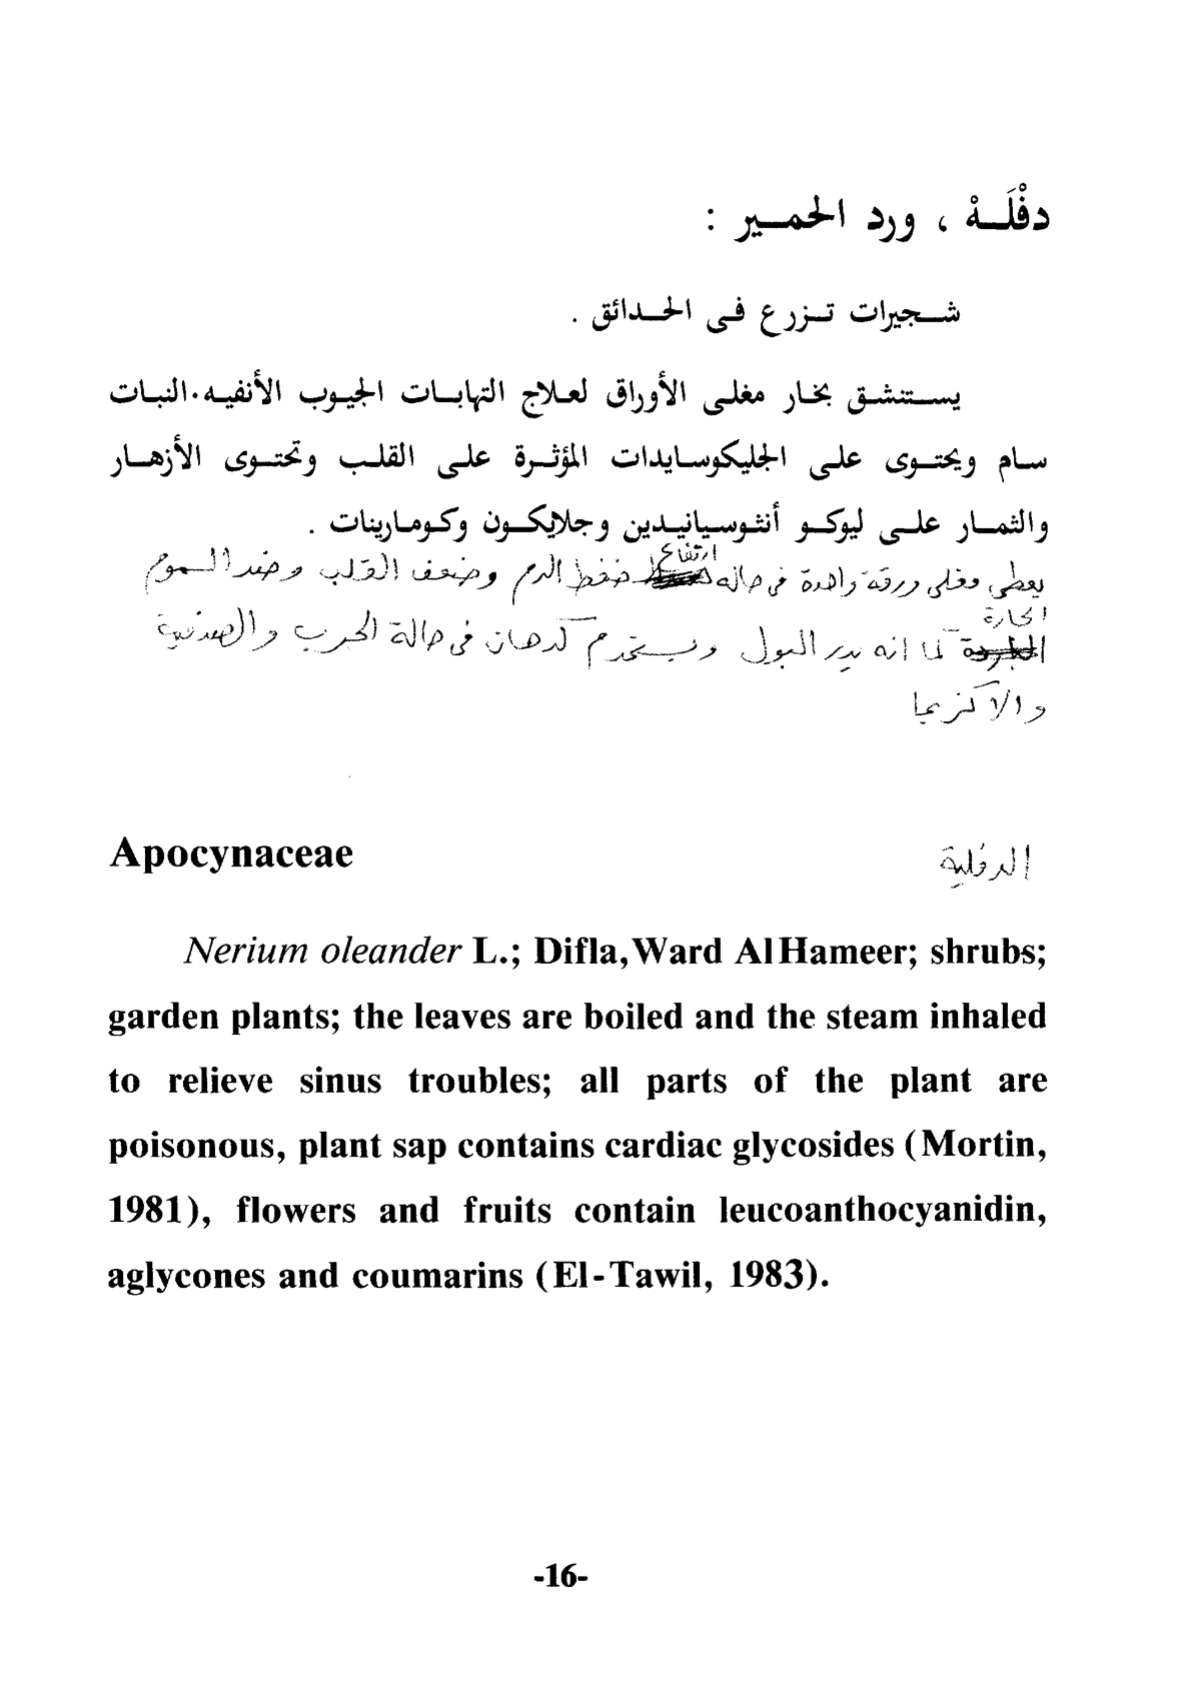 دفْلَـهْ ، ورد الحمـير :
شـجيرات تـزرع فى الحـدائق .
يسـتنشـق بخـار مغلـى الأوراق لعـلاج التهابـات الجيـوب الأنفيـه.النبـات
سـام ويحتـوى علـى الجليكوسـايدات المؤثـرة علـى القلـب وتحتـوى الأزهـار
والثمـار علـى ليوكـو أنثوسـيانيـدين وجلايكـون وكـومـارينات .
ارتفاع
يعطى مغلى ورقة واحدة فى حاله ضغط الدم وضعف القلب وضد السموم
الحارة
كما انه يدر البول ويستخدم كدهان فى حالة الجرب والصدفية
والاكزيما
Apocynaceae الدفلية
Nerium oleander L.; Difla, Ward Al Hameer; shrubs;
garden plants; the leaves are boiled and the steam inhaled
to relieve sinus troubles; all parts of the plant are
poisonous, plant sap contains cardiac glycosides (Mortin,
1981), flowers and fruits contain leucoanthocyanidin,
aglycones and coumarins (El-Tawil, 1983).
-16-